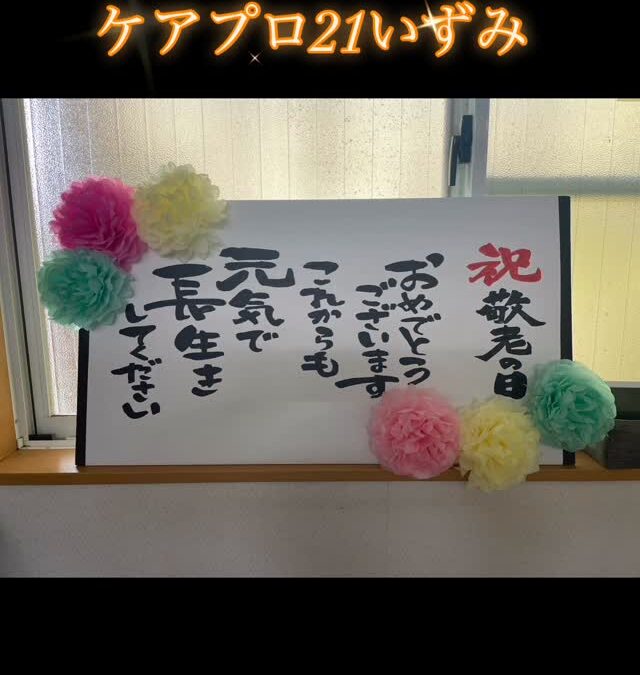 ケアプロ21いずみ
祝敬老の日
おめでとう
ございます
これからも
元気で
長生き
してください